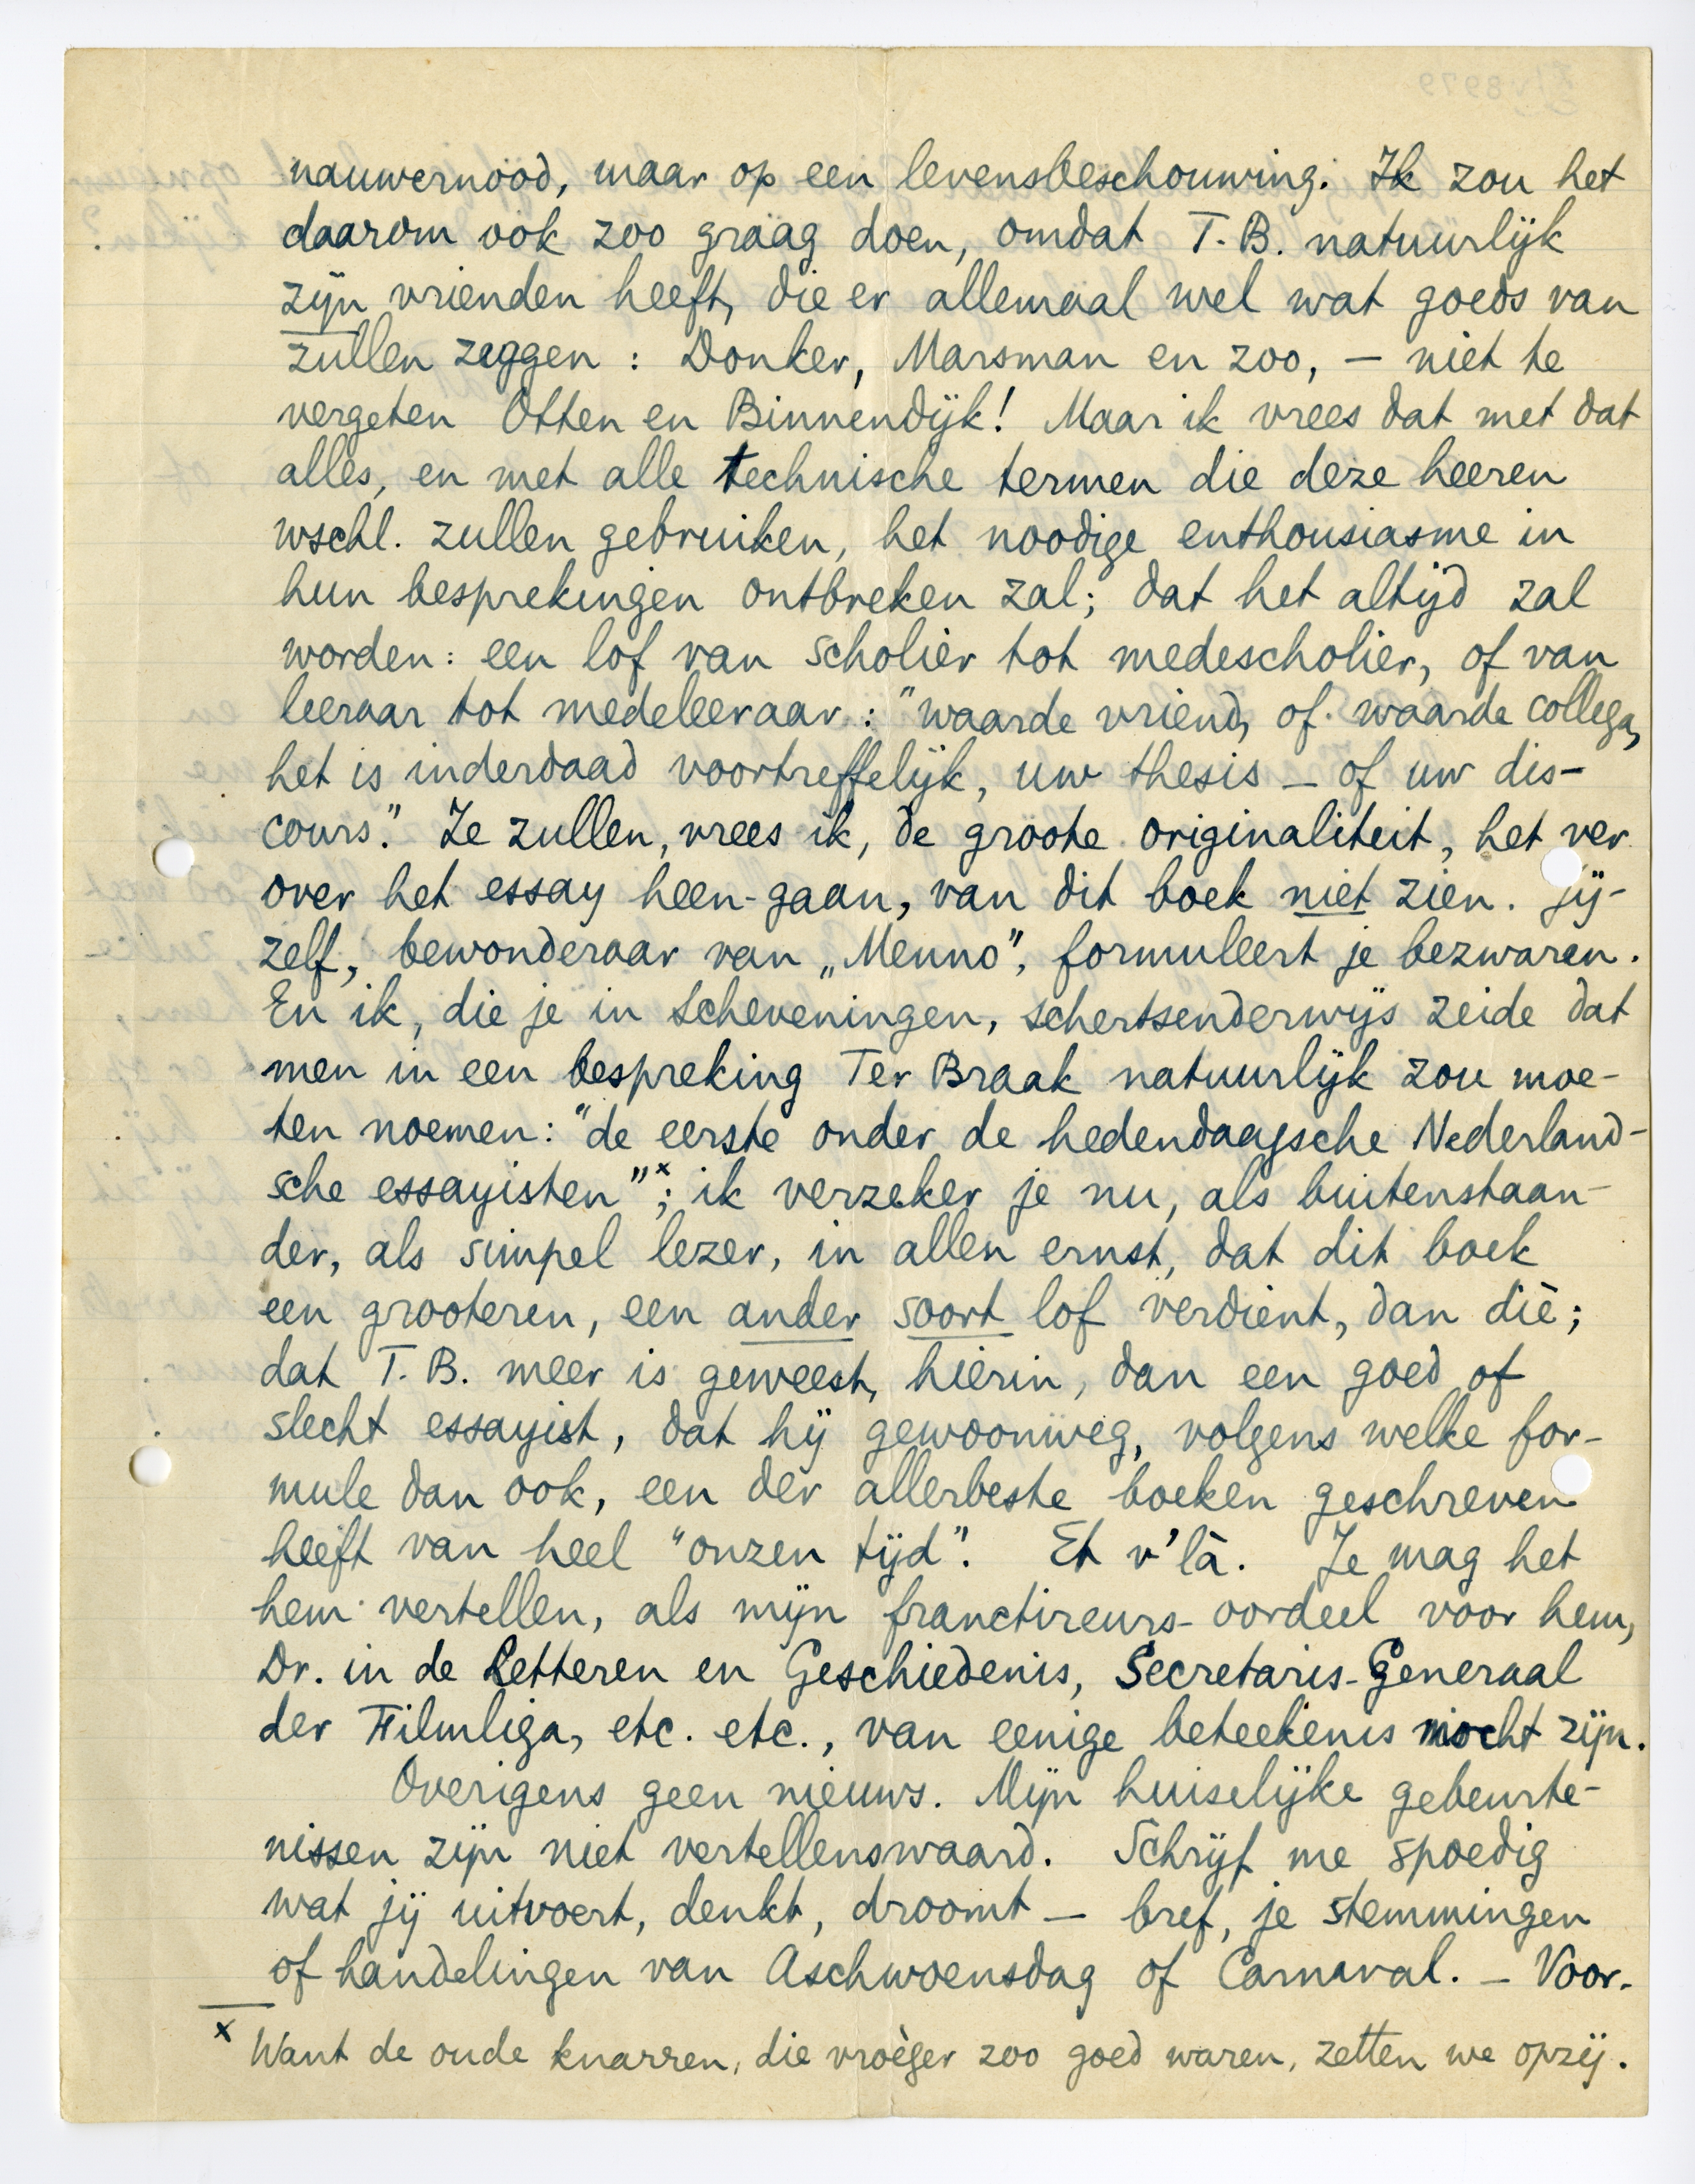 nauwernood, maar op een levensbeschouwing. Ik zou het
daarom ook zoo graag doen, omdat T.B. natuurlijk
zijn vrienden heeft, die er allemaal wel wat goeds van
zullen zeggen : Donker, Marsman en zoo, – niet te
vergeten Otten en Binnendijk! Maar ik vrees dat met dat
alles, en met alle technische termen die deze heeren
wschl. zullen gebruiken, het noodige enthousiasme in
hun besprekingen ontbreken zal; dat het altijd zal
worden: een lof van scholier tot medescholier, of van
leeraar tot medeleeraar : "waarde vriend, of waarde collega,
het is inderdaad voortreffelijk, uw thesis – of uw dis-
cours." Ze zullen, vrees ik, de groote originaliteit, het ver
over het essay heen-gaan, van dit boek niet zien. Jij-
zelf, bewonderaar van „Menno", formuleert je bezwaren.
En ik, die je in Scheveningen, schertsenderwijs zeide dat
men in een bespreking Ter Braak natuurlijk zou moe-
ten noemen: "de eerste onder de hedendaagsche Nederland-
sche essayisten"x; ik verzeker je nu, als buitenstaan-
der, als simpel lezer, in allen ernst, dat dit boek
een grooteren, een ander soort lof verdient, dan dìe;
dat T.B. meer is geweest, hierin, dan een goed of
slecht essayist, dat hij gewoonweg, volgens welke for-
mule dan ook, een der allerbeste boeken geschreven
heeft van heel "onzen tijd". Et v'là. Je mag het
hem vertellen, als mijn franctireurs-oordeel voor hem,
Dr. in de Letteren en Geschiedenis, Secretaris-Generaal
der Filmliga, etc. etc., van eenige beteekenis mocht zijn.
Overigens geen nieuws. Mijn huiselijke gebeurte-
nissen zijn niet vertellenswaard. Schrijf me spoedig
wat jij uitvoert, denkt, droomt – bref, je stemmingen
of handelingen van Aschwoensdag of Carnaval. – Voor-
x Want de oude knarren, die vroèger zoo goed waren, zetten we opzij.